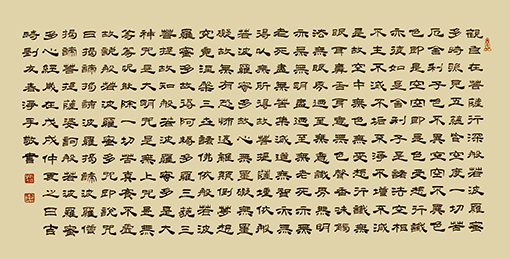 觀自在菩薩行深般若波羅蜜
多時照見五蘊皆空度一切苦
厄舍利子色不異空空不異色
色即是空空即是色受想行識
亦復如是舍利子是諸法空相
不生不滅不垢不淨不增不減
是故空中無色無受想行識無
眼耳鼻舌身意無色聲香味觸法
無眼界乃至無意識界無無明
亦無無明盡乃至無老死亦無
老死盡無苦集滅道無智亦無
得以無所得故菩提薩埵依般
若波羅蜜多故心無罣礙無罣
礙故無有恐怖遠離顛倒夢想
究竟涅槃三世諸佛依般若波
羅蜜多故得阿耨多羅三藐三
菩提故知般若波羅蜜多是大
神咒是大明咒是無上咒是無
等等咒能除一切苦真實不虛
故說般若波羅蜜多咒即說咒
曰揭諦揭諦波羅揭諦波羅僧
揭諦菩提薩婆訶般若波羅蜜
多心經戊戌仲夏之日吉
時劉友春海手敬書